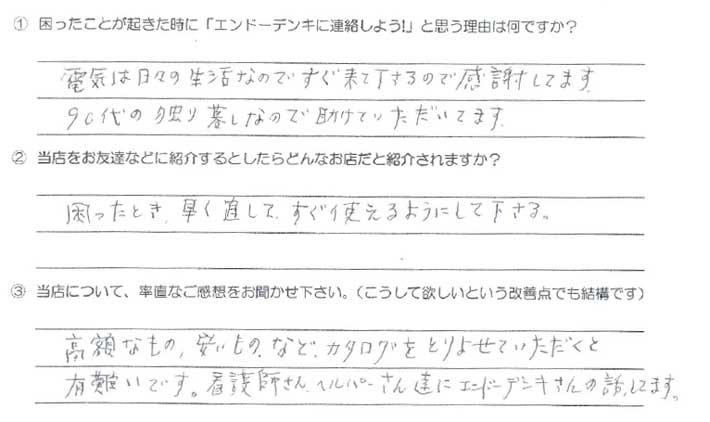 ① 困ったことが起きた時に「エンドーデンキに連絡しよう!」と思う理由は何ですか？
電気は日々の生活なのですぐ来て下さるので感謝してます.
90代の独り暮しなので助けていただいてます.
② 当店をお友達などに紹介するとしたらどんなお店だと紹介されますか？
困ったとき, 早く直して, すぐ使えるようにして下さる。
③ 当店について、率直なご感想をお聞かせ下さい。（こうして欲しいという改善点でも結構です）
高額なもの, 安いもの, など, カタログをとりよせていただくと
有難いです。看護師さん, ヘルパーさん達にエンドーデンキさんの話してます。